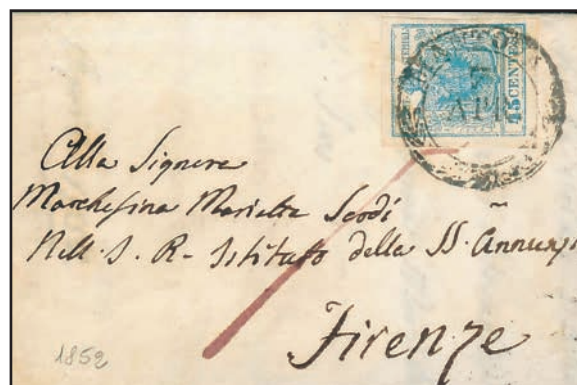 45 CENTES
MANTOVA
APR
Alla Signora
Marchesina Marietta
Nell. I. R. Istituto della SS. Annunz
Firenze
1852